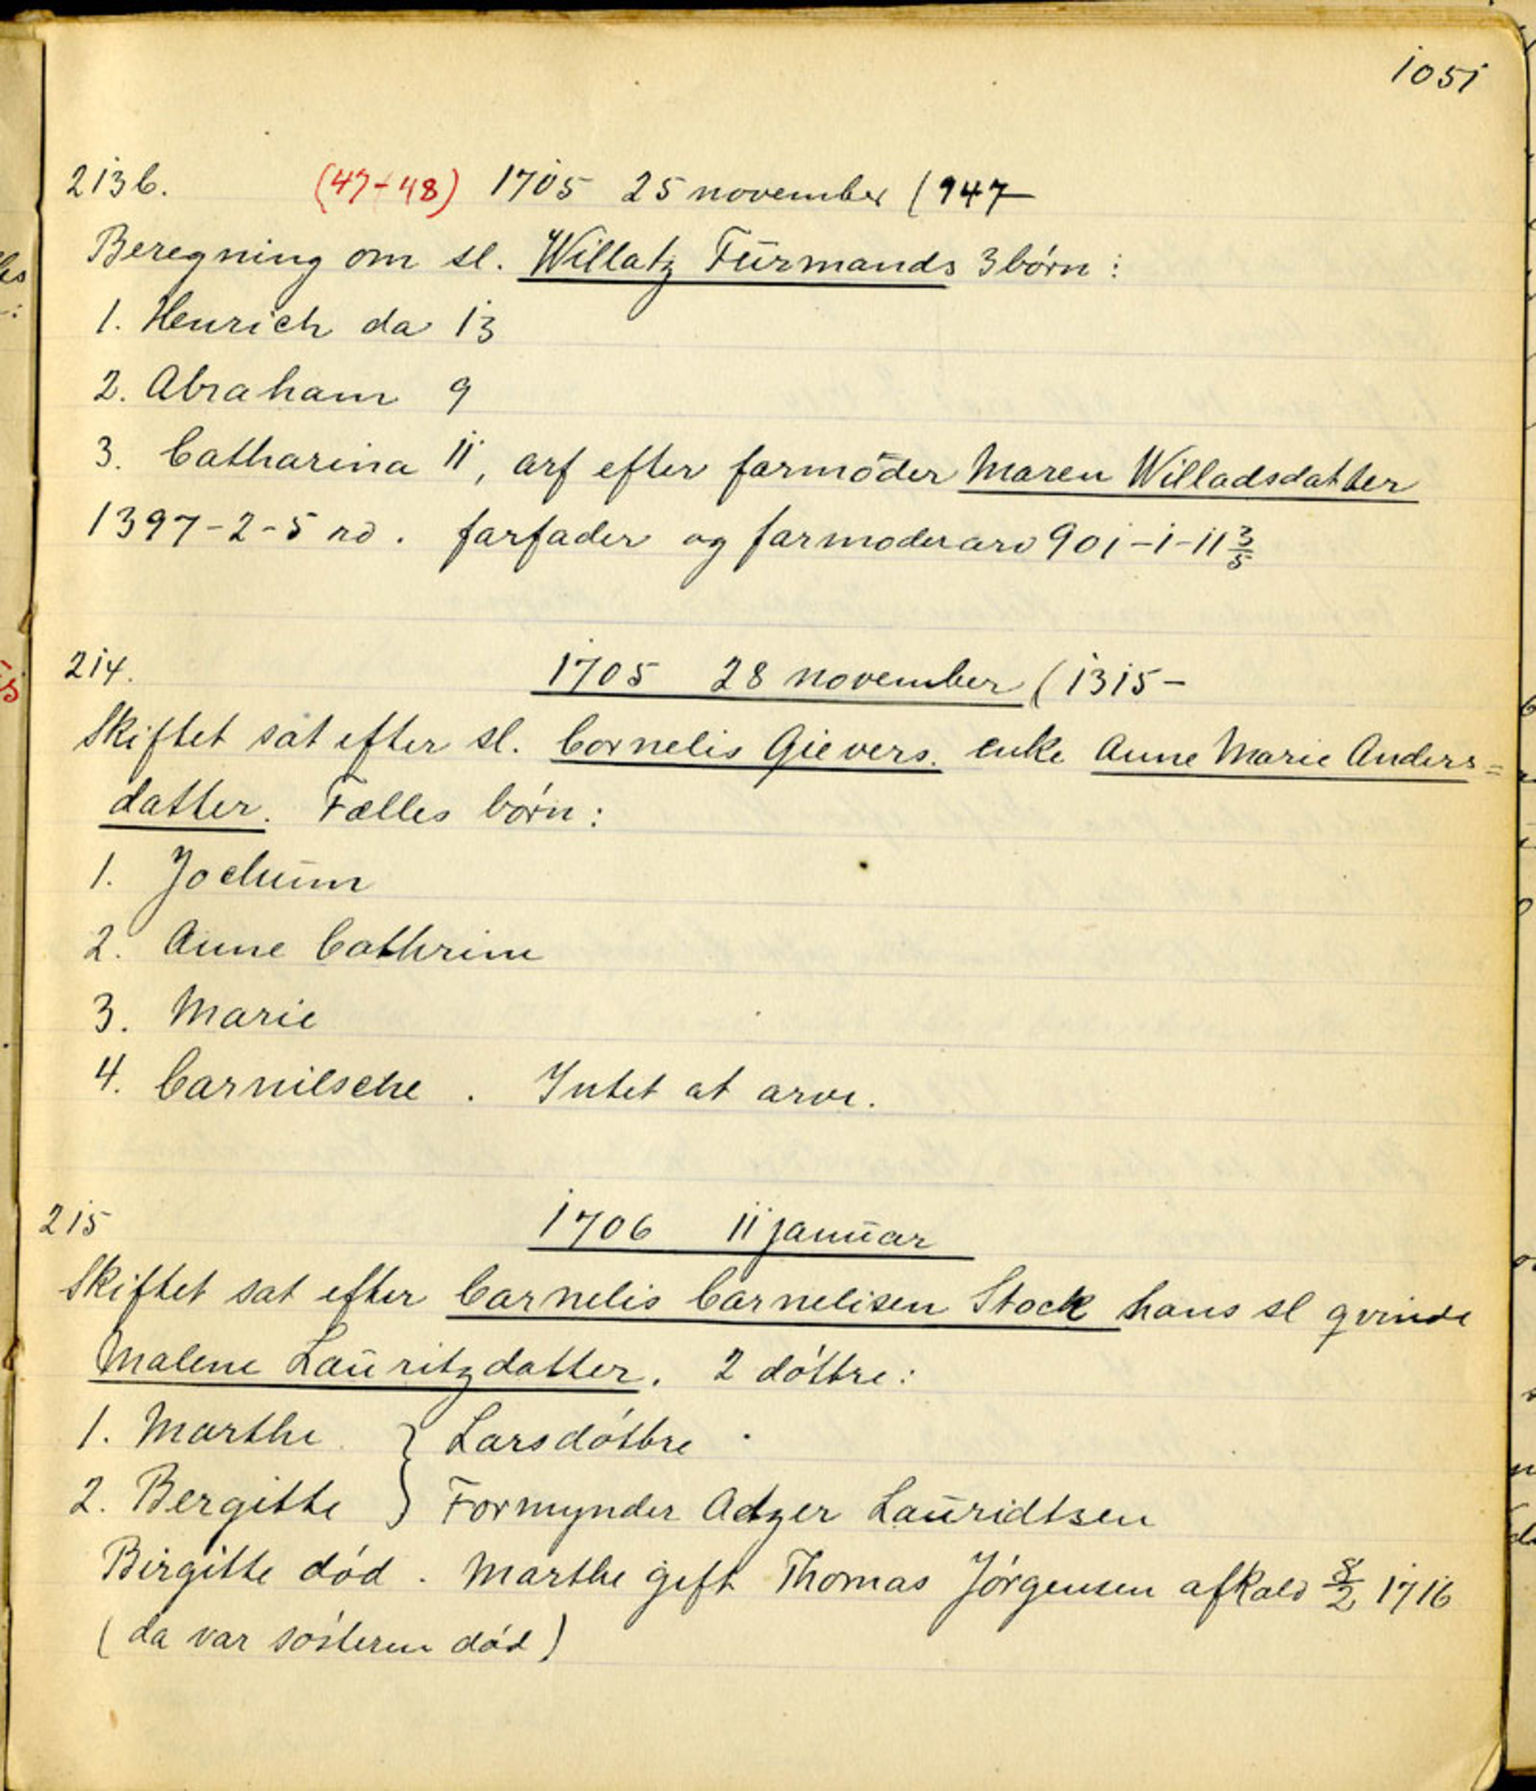 1051
213b. (47-48) 1705 25 november (947-
Beregning om sl. Willatz Fūrmands 3 börn:
1. Henrich da 13
2. Abraham 9
3. Catharina 11, arf efter farmoder Maren Willadsdatter
1397-2-5 rd. farfader og farmoderarv 901-1-11 3/5
214. 1705 28 november (1315-
Skiftet sat efter sl. Cornelis Gievers. enke Anne Marie Anders=
datter. Fælles börn:
1. Jochūm
2. Anne Cathrine
3. Marie
4. Carnilsche. Intet at arve.
215 1706 11 janūar
Skiftet sat efter Carnelis Carnelisen Stock hans sl qvinde
Malene Laūritzdatter. 2 döttre:
1. Marthe } Larsdöttre
2. Bergitte } Formynder Adzer Laūridtsen
Birgitte död. Marthe gift Thomas Jörgensen afkald 8/2 1716
(da var sösteren död)